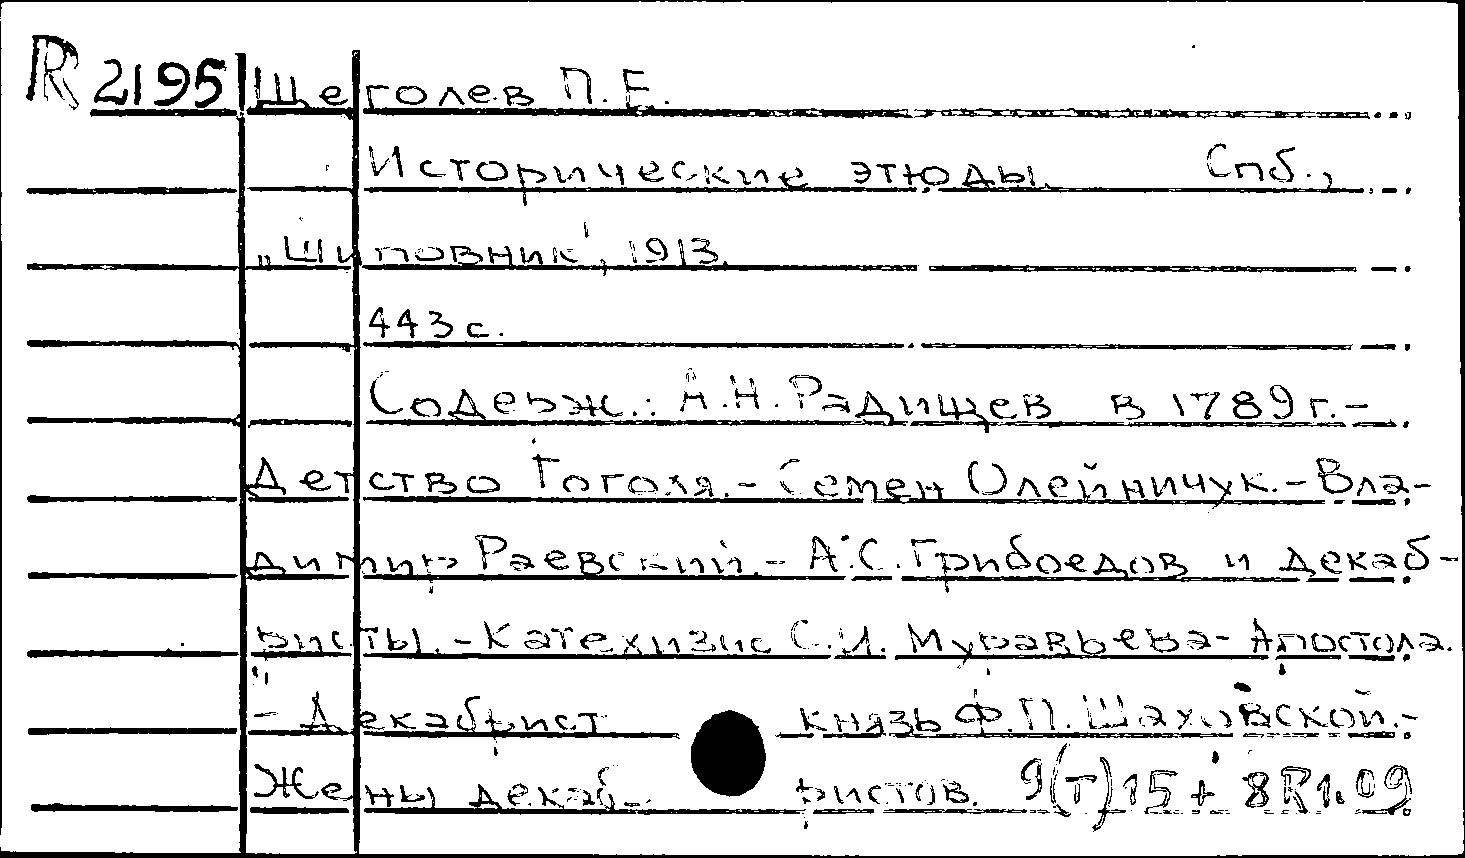 R 2195 Щеголев П.Е.
Исторические этюды. Спб.,
„Шиповник", 1913.
443 с.
Содерж.: А.Н. Радищев в 1789 г.-
Детство Гоголя.- Семен Олейничук.- Вла-
димир Раевский.- А.С. Грибоедов и декаб-
ристы.- Катехизис С.И. Муравьева-Апостола.
- Декабрист князь Ф.П. Шаховской.-
Жены декаб- ристов. 9(Т)15 + 8R1.09